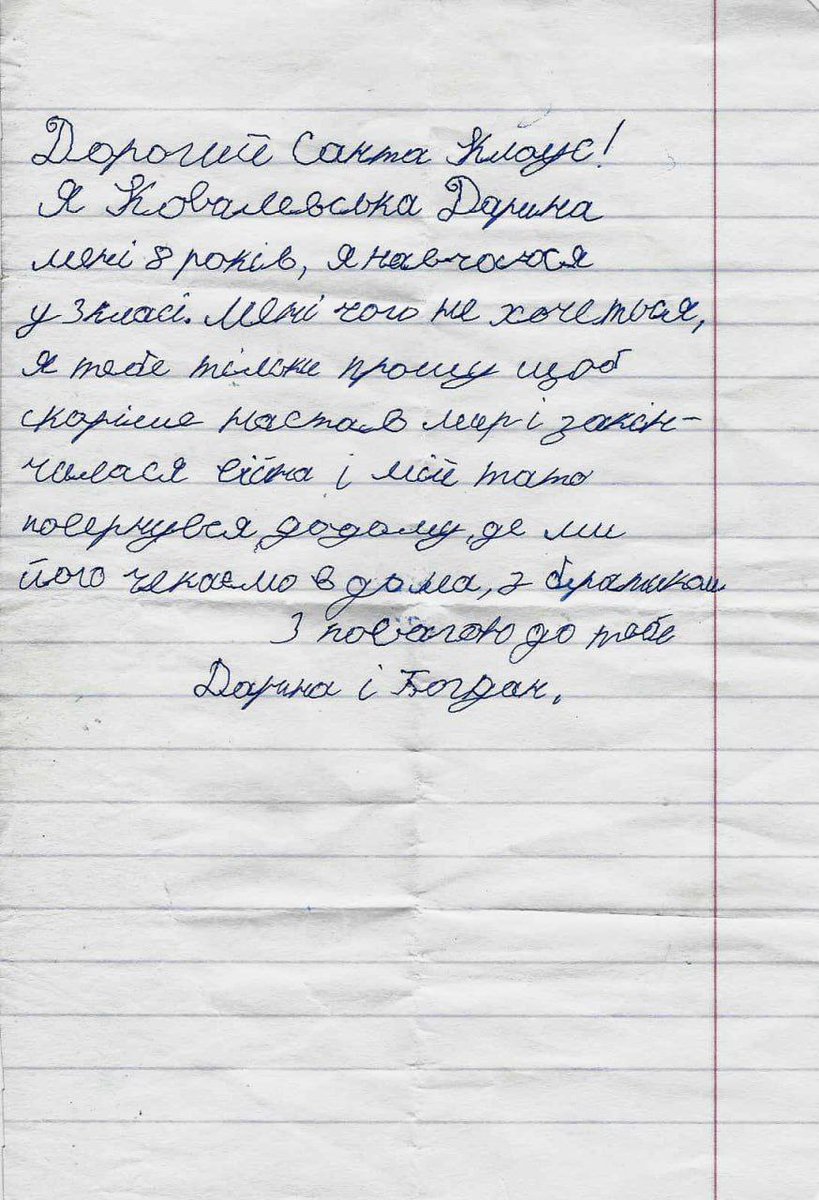 Дорогий Санта Клаус!
Я Ковалевська Дарина
мені 8 років, я навчаюся
у 3 класі. Мені чого не хочеться,
я тебе тільки прошу щоб
скоріше настав мир і закін-
чилася війна і мій тато
повернувся додому, де ми
його чекаємо в дома, з братиком
З повагою до тебе
Дарина і Богдан.